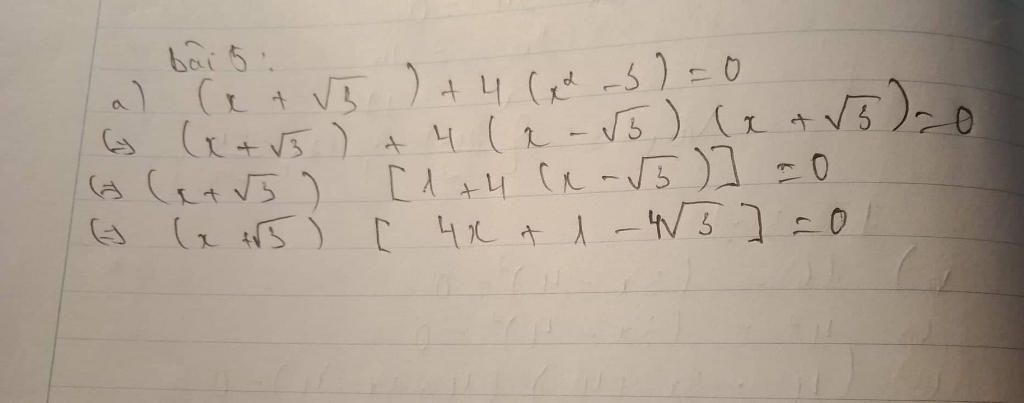 bài 5:
a) (x + √3) + 4 (x² - 3) = 0
(=) (x + √3) + 4 (x - √3) (x + √3) = 0
(=) (x + √3) [1 + 4 (x - √3)] = 0
(=) (x + √3) [4x + 1 - 4√3] = 0